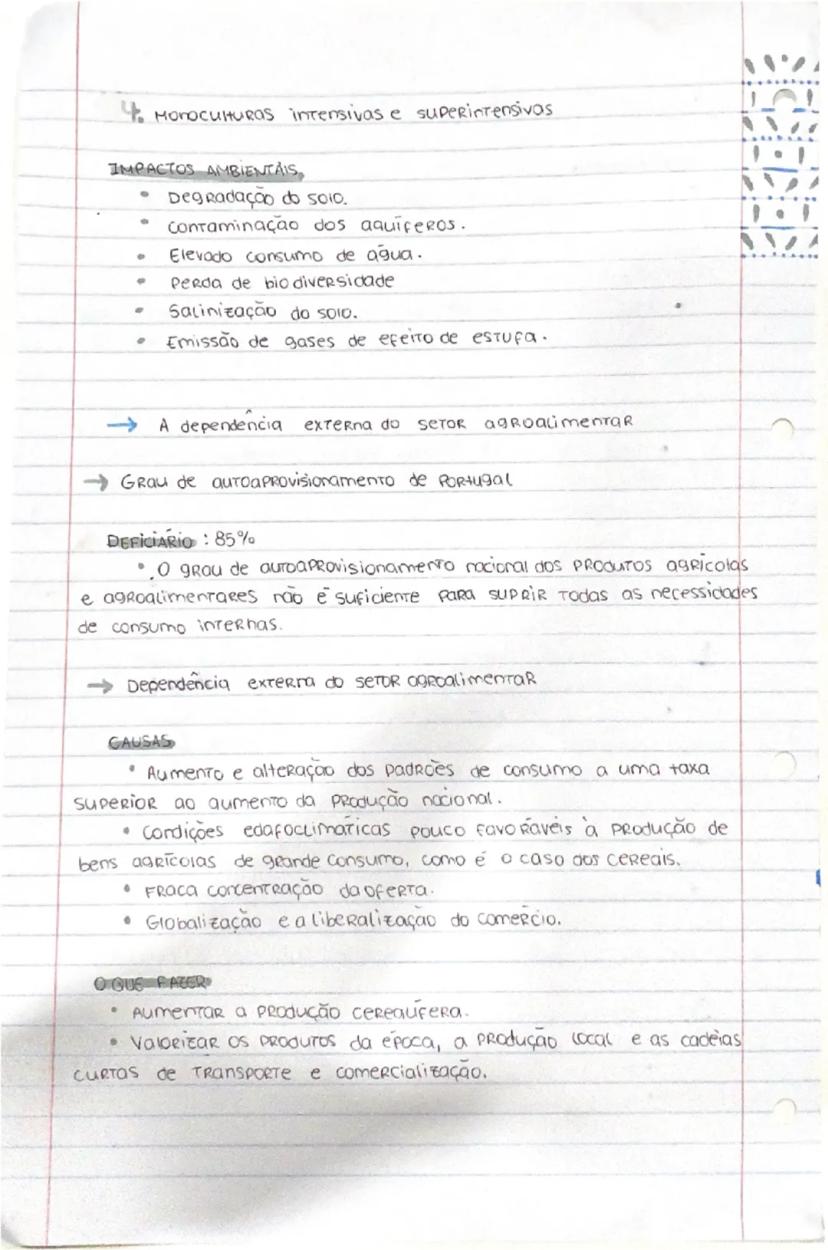 4. Monoculturas intensivas e superintensivas
IMPACTOS AMBIENTAIS,
• Degradação do solo.
• Contaminação dos aquíferos.
• Elevado consumo de água.
• Perda de biodiversidade
• Salinização do solo.
• Emissão de gases de efeito de estufa.
→ A dependência externa do setor agroalimentar
→ Grau de autoaprovisionamento de Portugal
DEFICIÁRIO : 85%
• O grau de autoaprovisionamento nacional dos produtos agrícolas
e agroalimentares não é suficiente para suprir todas as necessidades
de consumo internas.
→ Dependência externa do setor agroalimentar
CAUSAS
• Aumento e alteração dos padrões de consumo a uma taxa
superior ao aumento da produção nacional.
• Condições edafoclimáticas pouco favoráveis à produção de
bens agrícolas de grande consumo, como é o caso dos cereais.
• Fraca concentração da oferta.
• Globalização e a liberalização do comércio.
O QUE FAZER
• Aumentar a produção cerealífera.
• Valorizar os produtos da época, a produção local e as cadeias
curtas de transporte e comercialização.